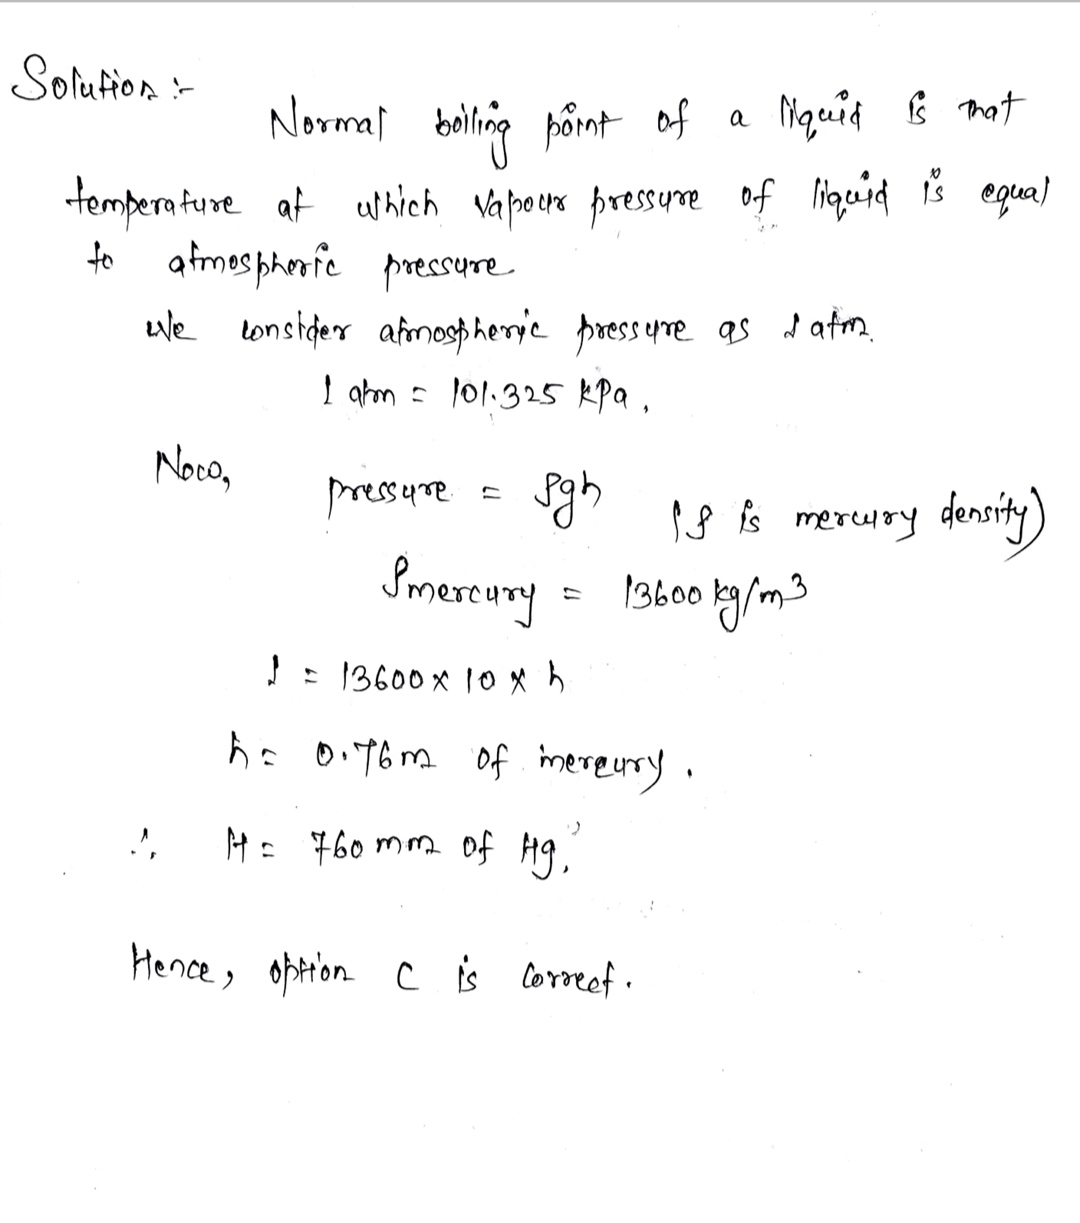 Solution :-
Normal boiling point of a liquid is that
temperature at which vapour pressure of liquid is equal
to atmospheric pressure
We consider atmospheric pressure as 1 atm.
1 atm = 101.325 kPa,
Now,
pressure = ρgh
(ρ is mercury density)
ρmercury = 13600 kg/m³
1 = 13600 x 10 x h
h = 0.76m of mercury.
∴ H = 760 mm of Hg.
Hence, option C is correct.